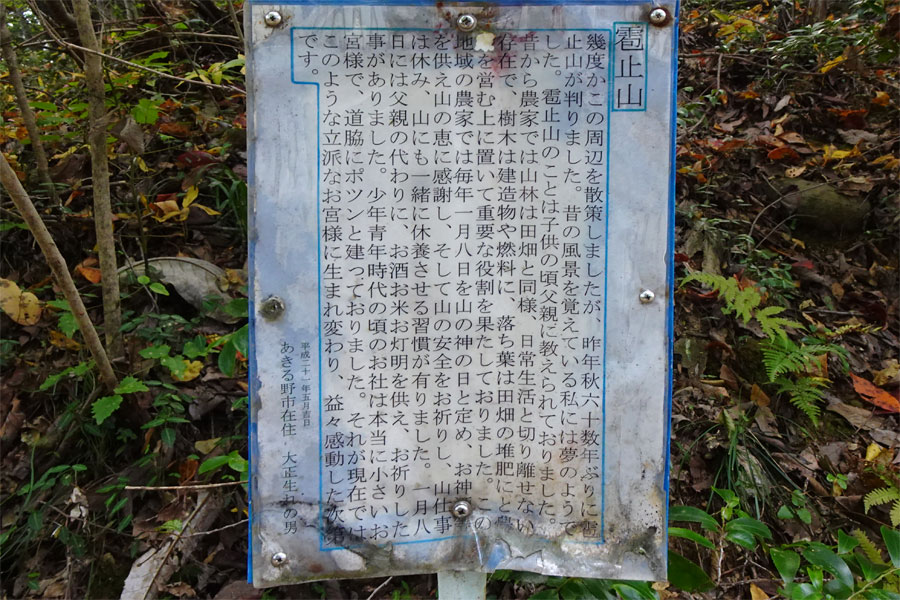 雹止山
幾度かこの周辺を散策しましたが、昨年秋六十数年ぶりに雹
止山が判りました。昔の風景を覚えている私には夢のようで
した。雹止山のことは子供の頃父親に教えられておりました。
昔から農家では山林は田畑と同様、日常生活と切り離せない
存在で、樹木は建造物や燃料に、落ち葉は田畑の堆肥にと農
を営む上に置いて重要な役割を果たしておりました。この
地域の農家では毎年一月八日を山の神の日と定め、お神
を供え山の恵に感謝し、そして山の安全をお祈りし、山仕事
は休み、山にも一緒に休養させる習慣が有りました。一月八
日には父親の代わりに、お酒お米お灯明を供え、お祈りした
事がありました。少年青年時代の頃のお社は本当に小さいお
宮様で、道脇にポツンと建っておりました。それが現在では
このような立派なお宮様に生まれ変わり、益々感動した次第
です。
平成二十一年五月吉日
あきる野市在住 大正生れの男